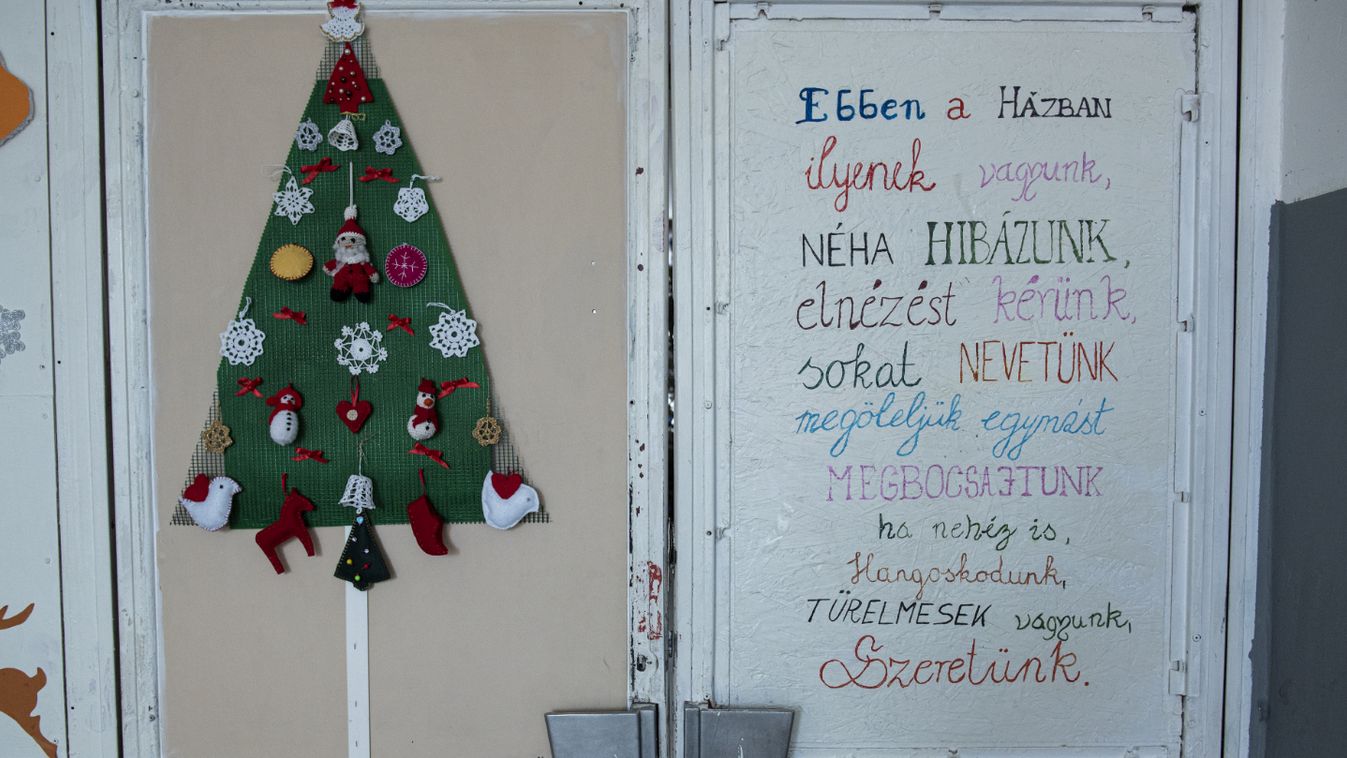 Ebben a HÁZBAN
ilyenek vagyunk,
NÉHA HIBÁZUNK,
elnézést kérünk,
sokat NEVETÜNK
megöleljük egymást
MEGBOCSAJTUNK
ha nehéz is,
Hangoskodunk,
TÜRELMESEK vagyunk,
Szeretünk.